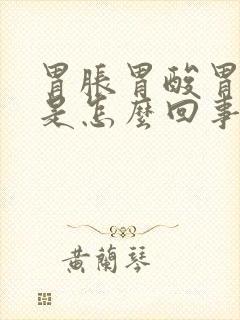 胃脹胃酸胃
是怎麼回事
黃蘭琴